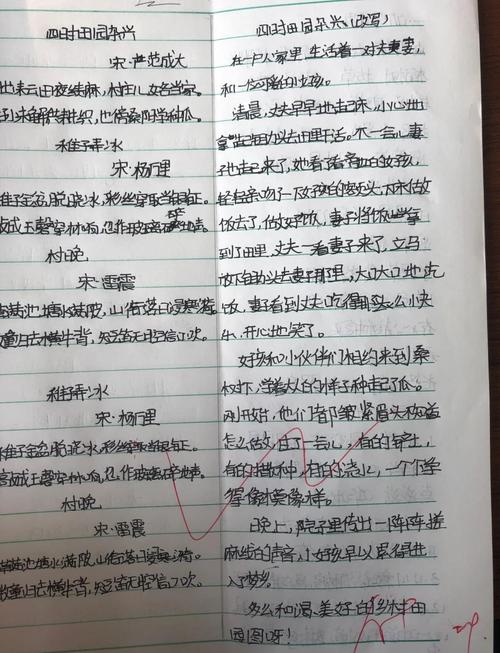 四时田园杂兴
宋·范成大
出耘田夜绩麻，村庄儿女各当家。
未解供耕织，也傍桑阴学种瓜。
稚子弄冰
宋·杨万里
稚子金盆脱晓冰，彩丝穿取当银钲。
敲成玉磬穿林响，忽作玻璃碎地声。
村晚
宋·雷震
草满池塘水满陂，山衔落日浸寒漪。
童归去横牛背，短笛无腔信口吹。
稚子弄冰
宋·杨万里
稚子金盆脱晓冰，彩丝穿取当银钲。
敲成玉磬穿林响，忽作玻璃碎地声。
村晚
宋·雷震
草满池塘水满陂，山衔落日浸寒漪。
牧童归去横牛背，短笛无腔信口吹。
四时田园杂兴（改写）
在一户人家里，生活着一对夫妻
和一位可爱的女孩。
清晨，丈夫早早地起床，小心地
拿起锄头去田里干活。不一会儿妻
子也起来了，她看了看的女孩，
轻轻亲吻了一下女孩的额头，下床做
饭去了，做好饭，妻子将饭拿
到了田里，丈夫一看妻子来了，立马
放下锄头去妻子那里，大口大口地吃
饭，妻子看到丈夫吃得那么快
乐，开心地笑了。
女孩和小伙伴们相约来到桑
树下，学着大人的样子种起了瓜。
刚开始，他们皱紧眉头
怎么做，过了一会儿，有的铲土，
有的播种，有的浇水，一个个学
得像模像样。
晚上，院子里传出一阵阵搓
麻线的声音，小女孩早已累得进
入了梦乡。
多么和谐、美好的乡村田
园图呀！